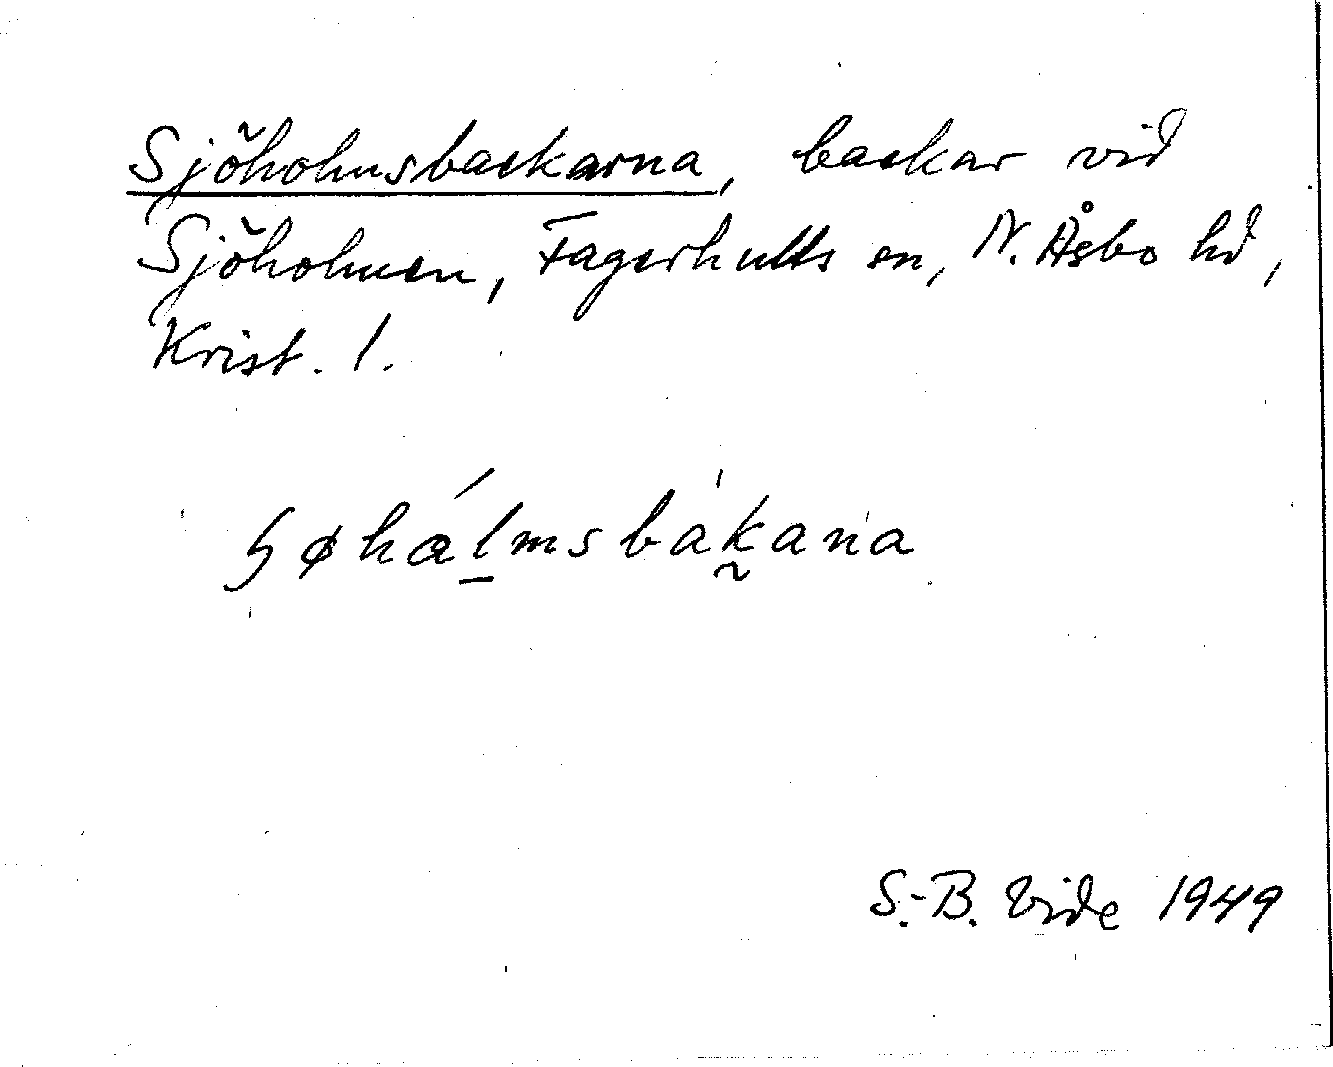 Sjöholmsbackarna, backar vid
Sjöholmen, Fagerhults sn, N. Åsbo hd,
Krist. l.
ɧøhál̠msbàk̰ana
S.-B. Vide 1949